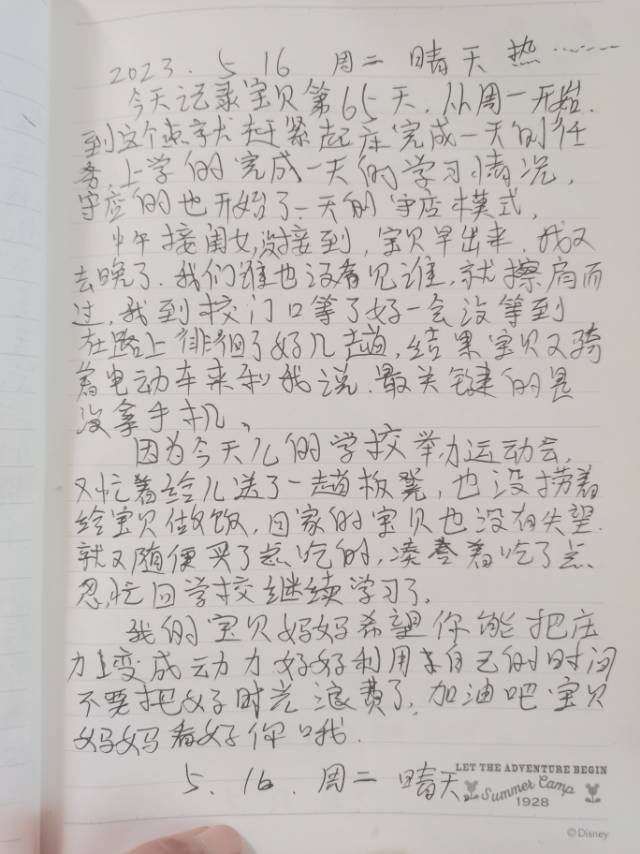 2023. 5 16 周二 晴天 热……
今天记录宝贝第65天.从周一开始.
到这个点就赶紧起床完成一天的任
务,上学的完成一天的学习情况,
守店的也开始了一天的守店模式,
中午接闺女,没接到,宝贝早出来,我又
去晚了.我们谁也没看见谁,就擦肩而
过,我到校门口等了好一会没等到
在路上徘徊了好几趟,结果宝贝又骑
着电动车来找我说.最关键的是
没拿手机、
因为今天儿的学校举办运动会,
又忙着给儿送了一趟板凳,也没捞着
给宝贝做饭,回家的宝贝也没有失望.
就又随便买了点吃的,凑合着吃了点.
忽忙回学校继续学习了.
我的宝贝妈妈希望你能把压
力上变成动力好好利用本自己的时间
不要把好时光浪费了,加油吧宝贝
妈妈看好你哦.
5. 16. 周二 晴天.
LET THE ADVENTURE BEGIN
Summer Camp
1928
©Disney